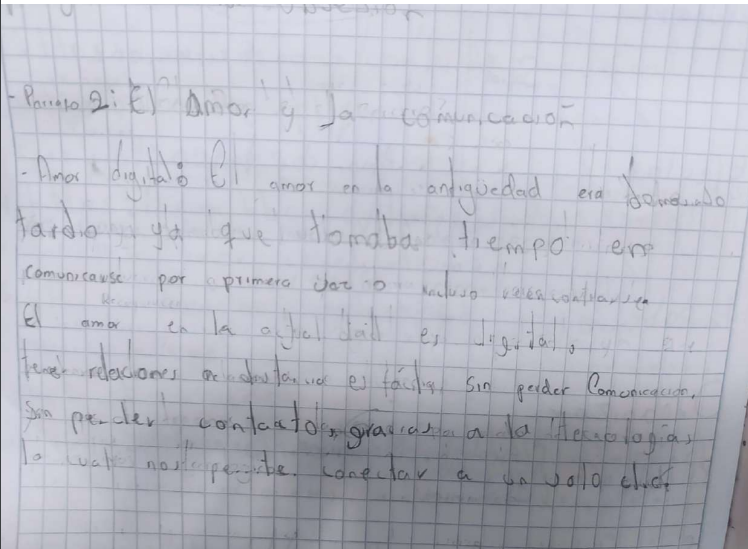 - Parrafo 2: El amor y la comunicación
- Amor digital: El amor en la antiguedad era demasiado
tardio, ya que tomaba tiempo en
comunicarse por primera vez o incluso
El amor en la actualidad es digital,
tener relaciones a distancia es fácil, sin perder comunicación,
sin perder contacto, gracias a la tecnologia,
lo cual nos permite conectar a un solo click